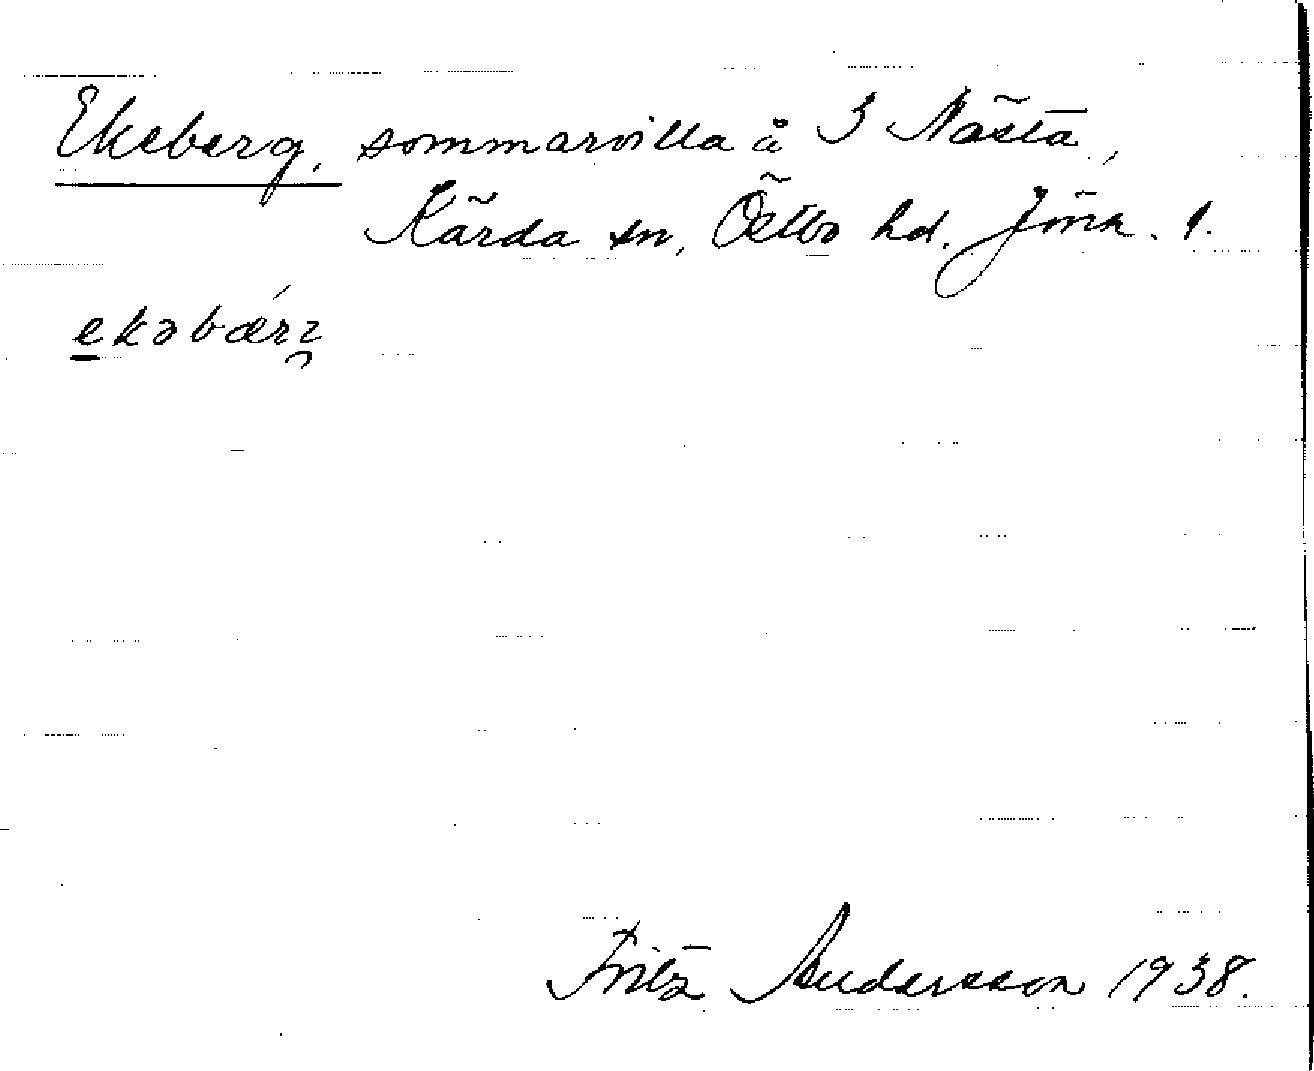 Ekeberg, sommarvilla å 3 Nästa,
Kärda sn, Östbo hd. Jönk. l.
ekəbærɂ
Fritz Andersson 1938.